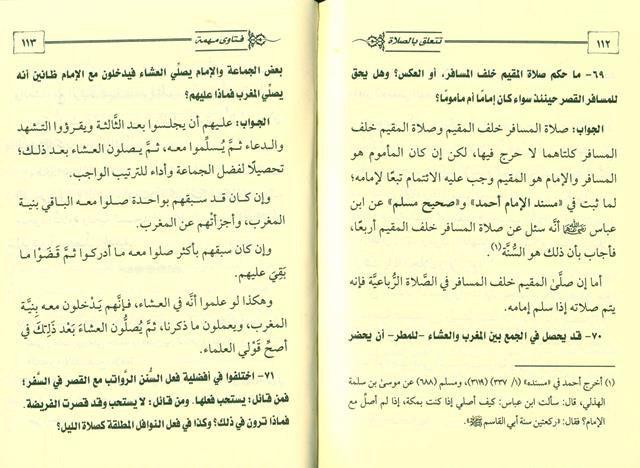 ١١٢
تتعلق بالصلاة
٦٩- ما حكم صلاة المقيم خلف المسافر، أو العكس؟ وهل يحق
للمسافر القصر حينئذ سواء كان إمامًا أم مأمومًا؟
الجواب: صلاة المسافر خلف المقيم وصلاة المقيم خلف
المسافر كلتاهما لا حرج فيها، لكن إن كان المأموم هو
المسافر والإمام هو المقيم وجب عليه الائتمام تبعًا لإمامه؛
لما ثبت في «مسند الإمام أحمد» و«صحيح مسلم» عن ابن
عباس أنَّه سئل عن صلاة المسافر خلف المقيم أربعًا،
فأجاب بأن ذلك هو السُّنَّة(١).
أما إن صلَّى المقيم خلف المسافر في الصَّلاة الرُّباعيَّة فإنه
يتم صلاته إذا سلم إمامه.
٧٠- قد يحصل في الجمع بين المغرب والعشاء -للمطر- أن يحضر
(١) أخرج أحمد في «مسنده» (١/ ٣٣٧) (٣١١٩)، ومسلم (٦٨٨) عن موسىٰ بن سلمة
الهذلي، قال: سألت ابن عباس: كيف أصلي إذا كنت بمكة، إذا لم أصل مع
الإمام؟ فقال: «ركعتين سنة أبي القاسم ﷺ».
فتاوى مهمة
١١٣
بعض الجماعة والإمام يصلّي العشاء فيدخلون مع الإمام ظانين أنه
يصلّي المغرب فماذا عليهم؟
الجواب: عليهم أن يجلسوا بعد الثَّالثة ويقرؤوا التشهد
والدعاء ثمَّ يُسلِّموا معه، ثمَّ يصلون العشاء بعد ذلك؛
تحصيلًا لفضل الجماعة وأداء للترتيب الواجب.
وإن كان قد سبقهم بواحدة صلوا معه الباقي بنية
المغرب، وأجزأتهم عن المغرب.
وإن كان سبقهم بأكثر صلوا معه ما أدركوا ثمَّ قَضَوْا ما
بَقِيَ عليهم.
وهكذا لو علموا أنَّه في العشاء، فإنَّهم يَدْخلون معه بِنِيَّة
المغرب، ويعملون ما ذكرنا، ثمَّ يُصلُّون العشاءَ بَعْد ذَلِكَ في
أصحِّ قَوْلي العلماء.
٧١- اختلفوا في أفضلية فعل السُّنن الرَّواتب مع القصر في السَّفر؛
فمن قائل: يستحب فعلها. ومن قائل: لا يستحب وقد قصرت الفريضة.
فماذا ترون في ذلك؟ وكذا في فعل النوافل المطلقة كصلاة الليل؟